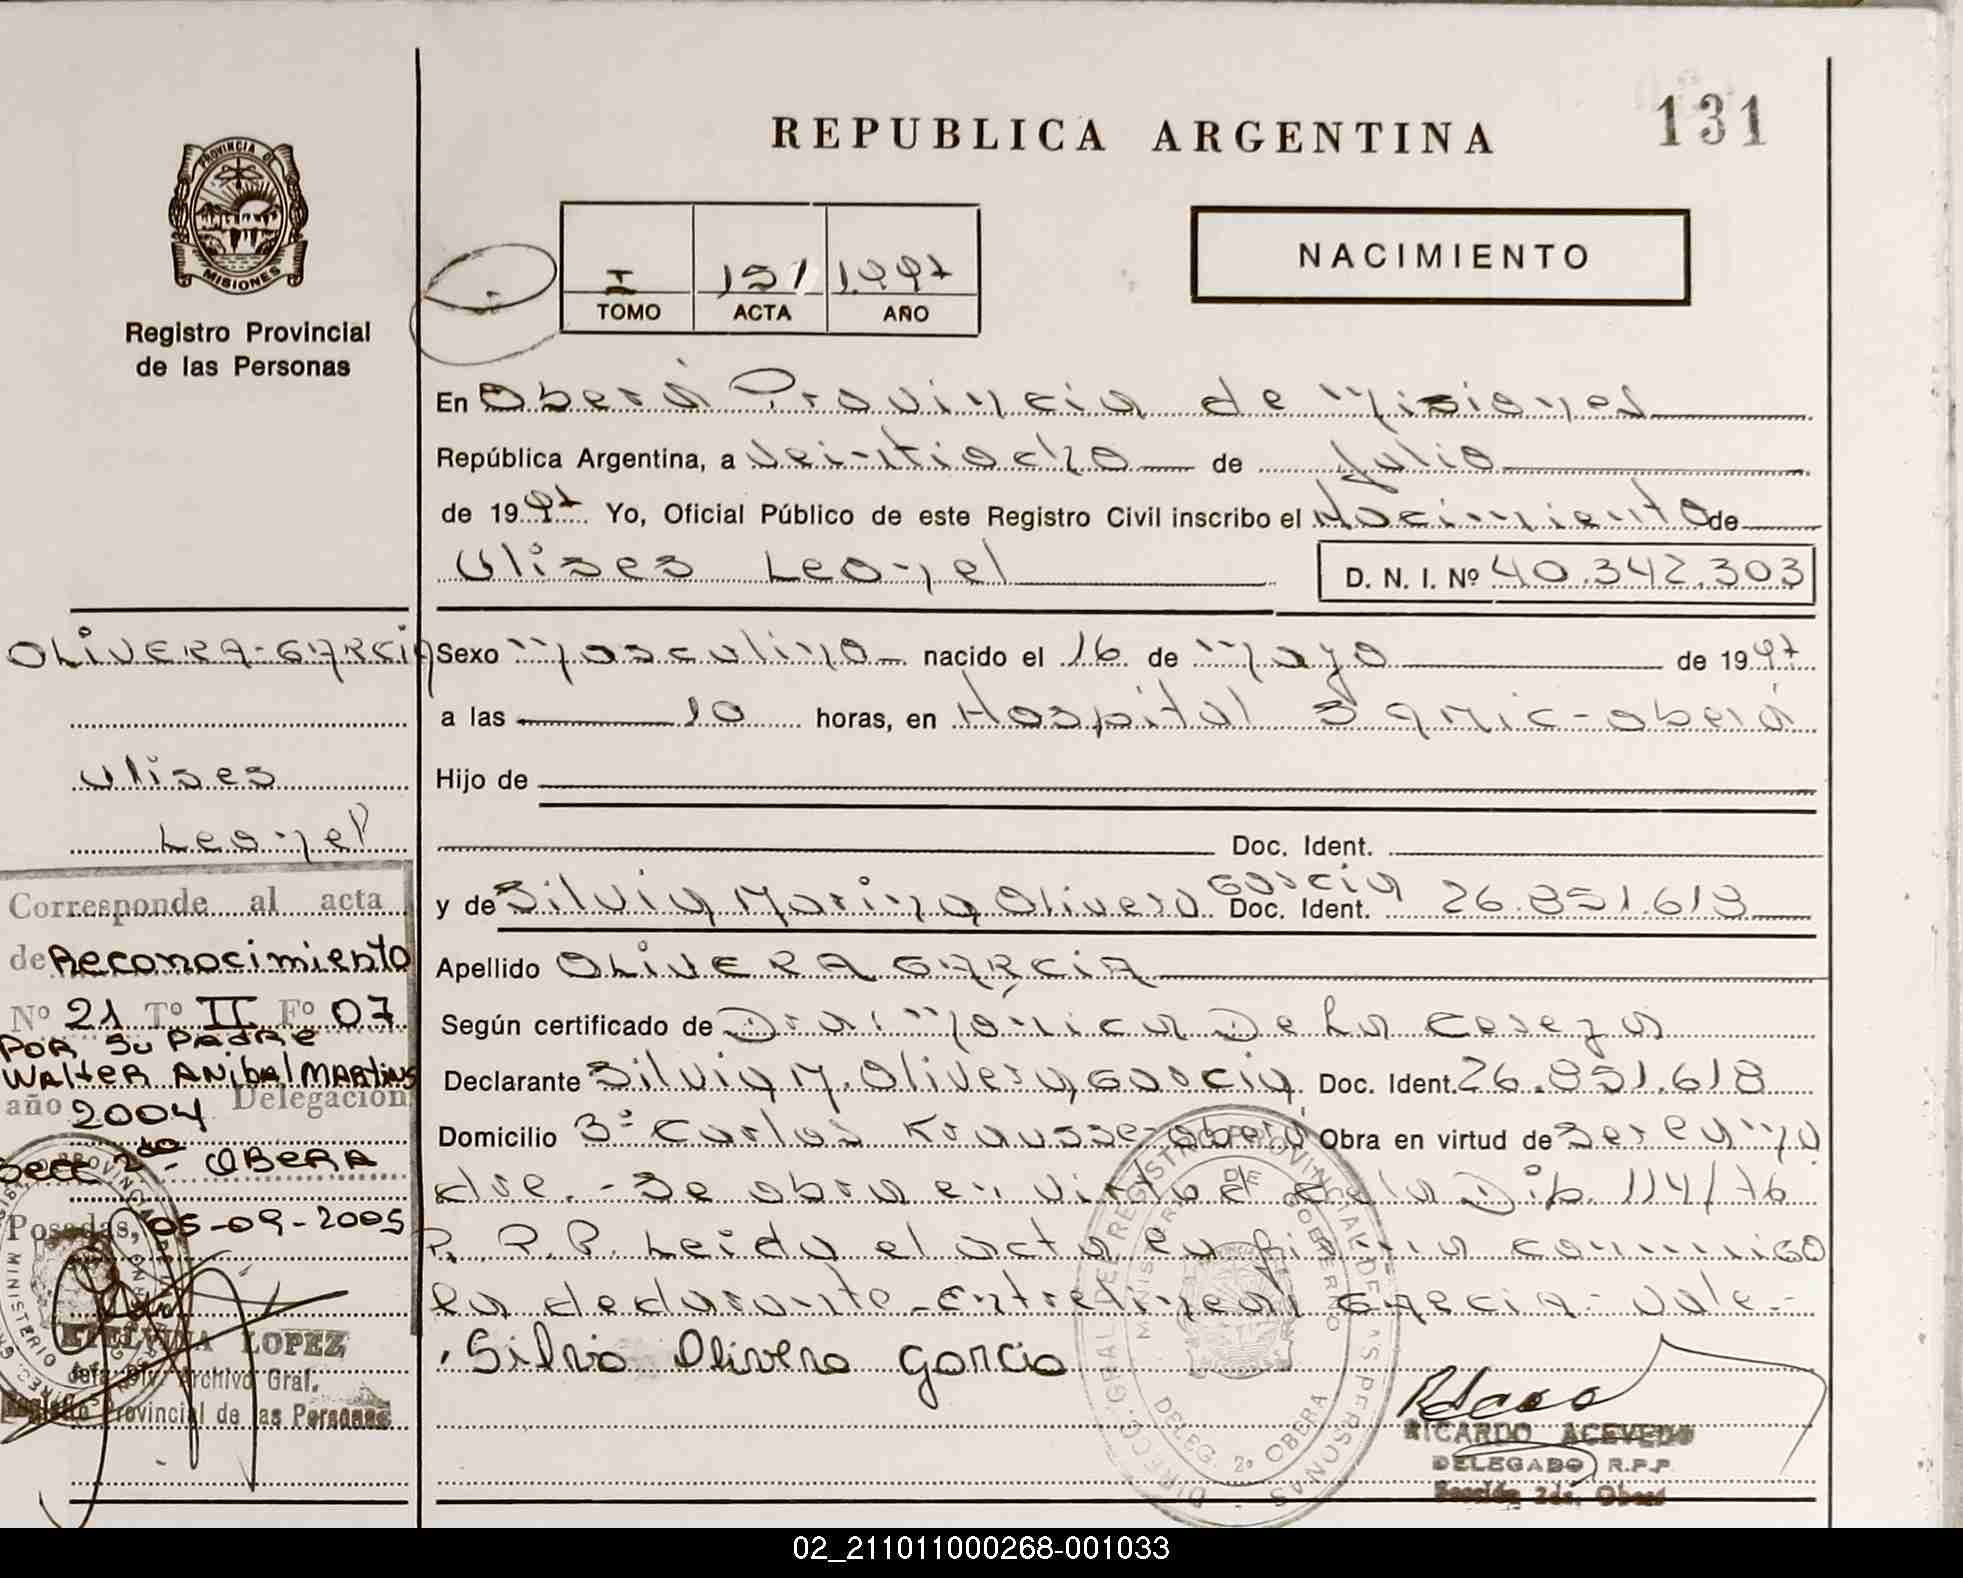 131
REPUBLICA ARGENTINA
PROVINCIA DE
MISIONES
Registro Provincial
de las Personas
NACIMIENTO
I 151 1.997
TOMO ACTA AÑO
En Oberá Provincia de Misiones
República Argentina, a Veintiocho de Julio
de 1997 Yo, Oficial Público de este Registro Civil inscribo el Nacimiento de
Ulises Leonel D. N. I. Nº 40.342.303
Sexo Masculino nacido el 16 de Mayo de 1997
a las 10 horas, en Hospital Samic-Oberá
Hijo de
Doc. Ident.
García
y de Silvia Marina Olivera Doc. Ident. 26.851.618
Apellido OLIVERA GARCIA
Según certificado de Dra. Mónica De La
Declarante Silvia M. Olivera, García Doc. Ident. 26.851.618
Domicilio Bº Carlos Krausse-Oberá Obra en virtud de Ser la ma
dre.-Se obra en virtud de la Dip. 114/76
R. P. P. Leida el acta la firma conmigo
la declarante-Entrelinea: García-Vale-
Silvia Olivera Garcia
RICARDO ACEVEDO
DELEGADO R.P.P.
Sección 2da. Oberá
OLIVERA-GARCIA
Ulises
Leonel
Corresponde al acta
de Reconocimiento
Nº 21 Tº II Fº 07
POR Su PADRE
WALTER ANIBAL MARTINS
año 2004 Delegación
Secc 2da- OBERA
Posadas, 05-09-2005
LOPEZ
Jefa Div. Archivo Gral.
Registro Provincial de las Personas
DELEG. 2º OBERA
02_211011000268-001033